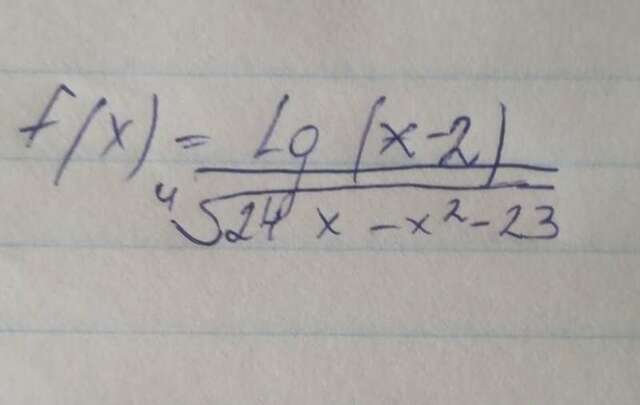 f(x) = Lg (x-2)
4√24x - x²-23